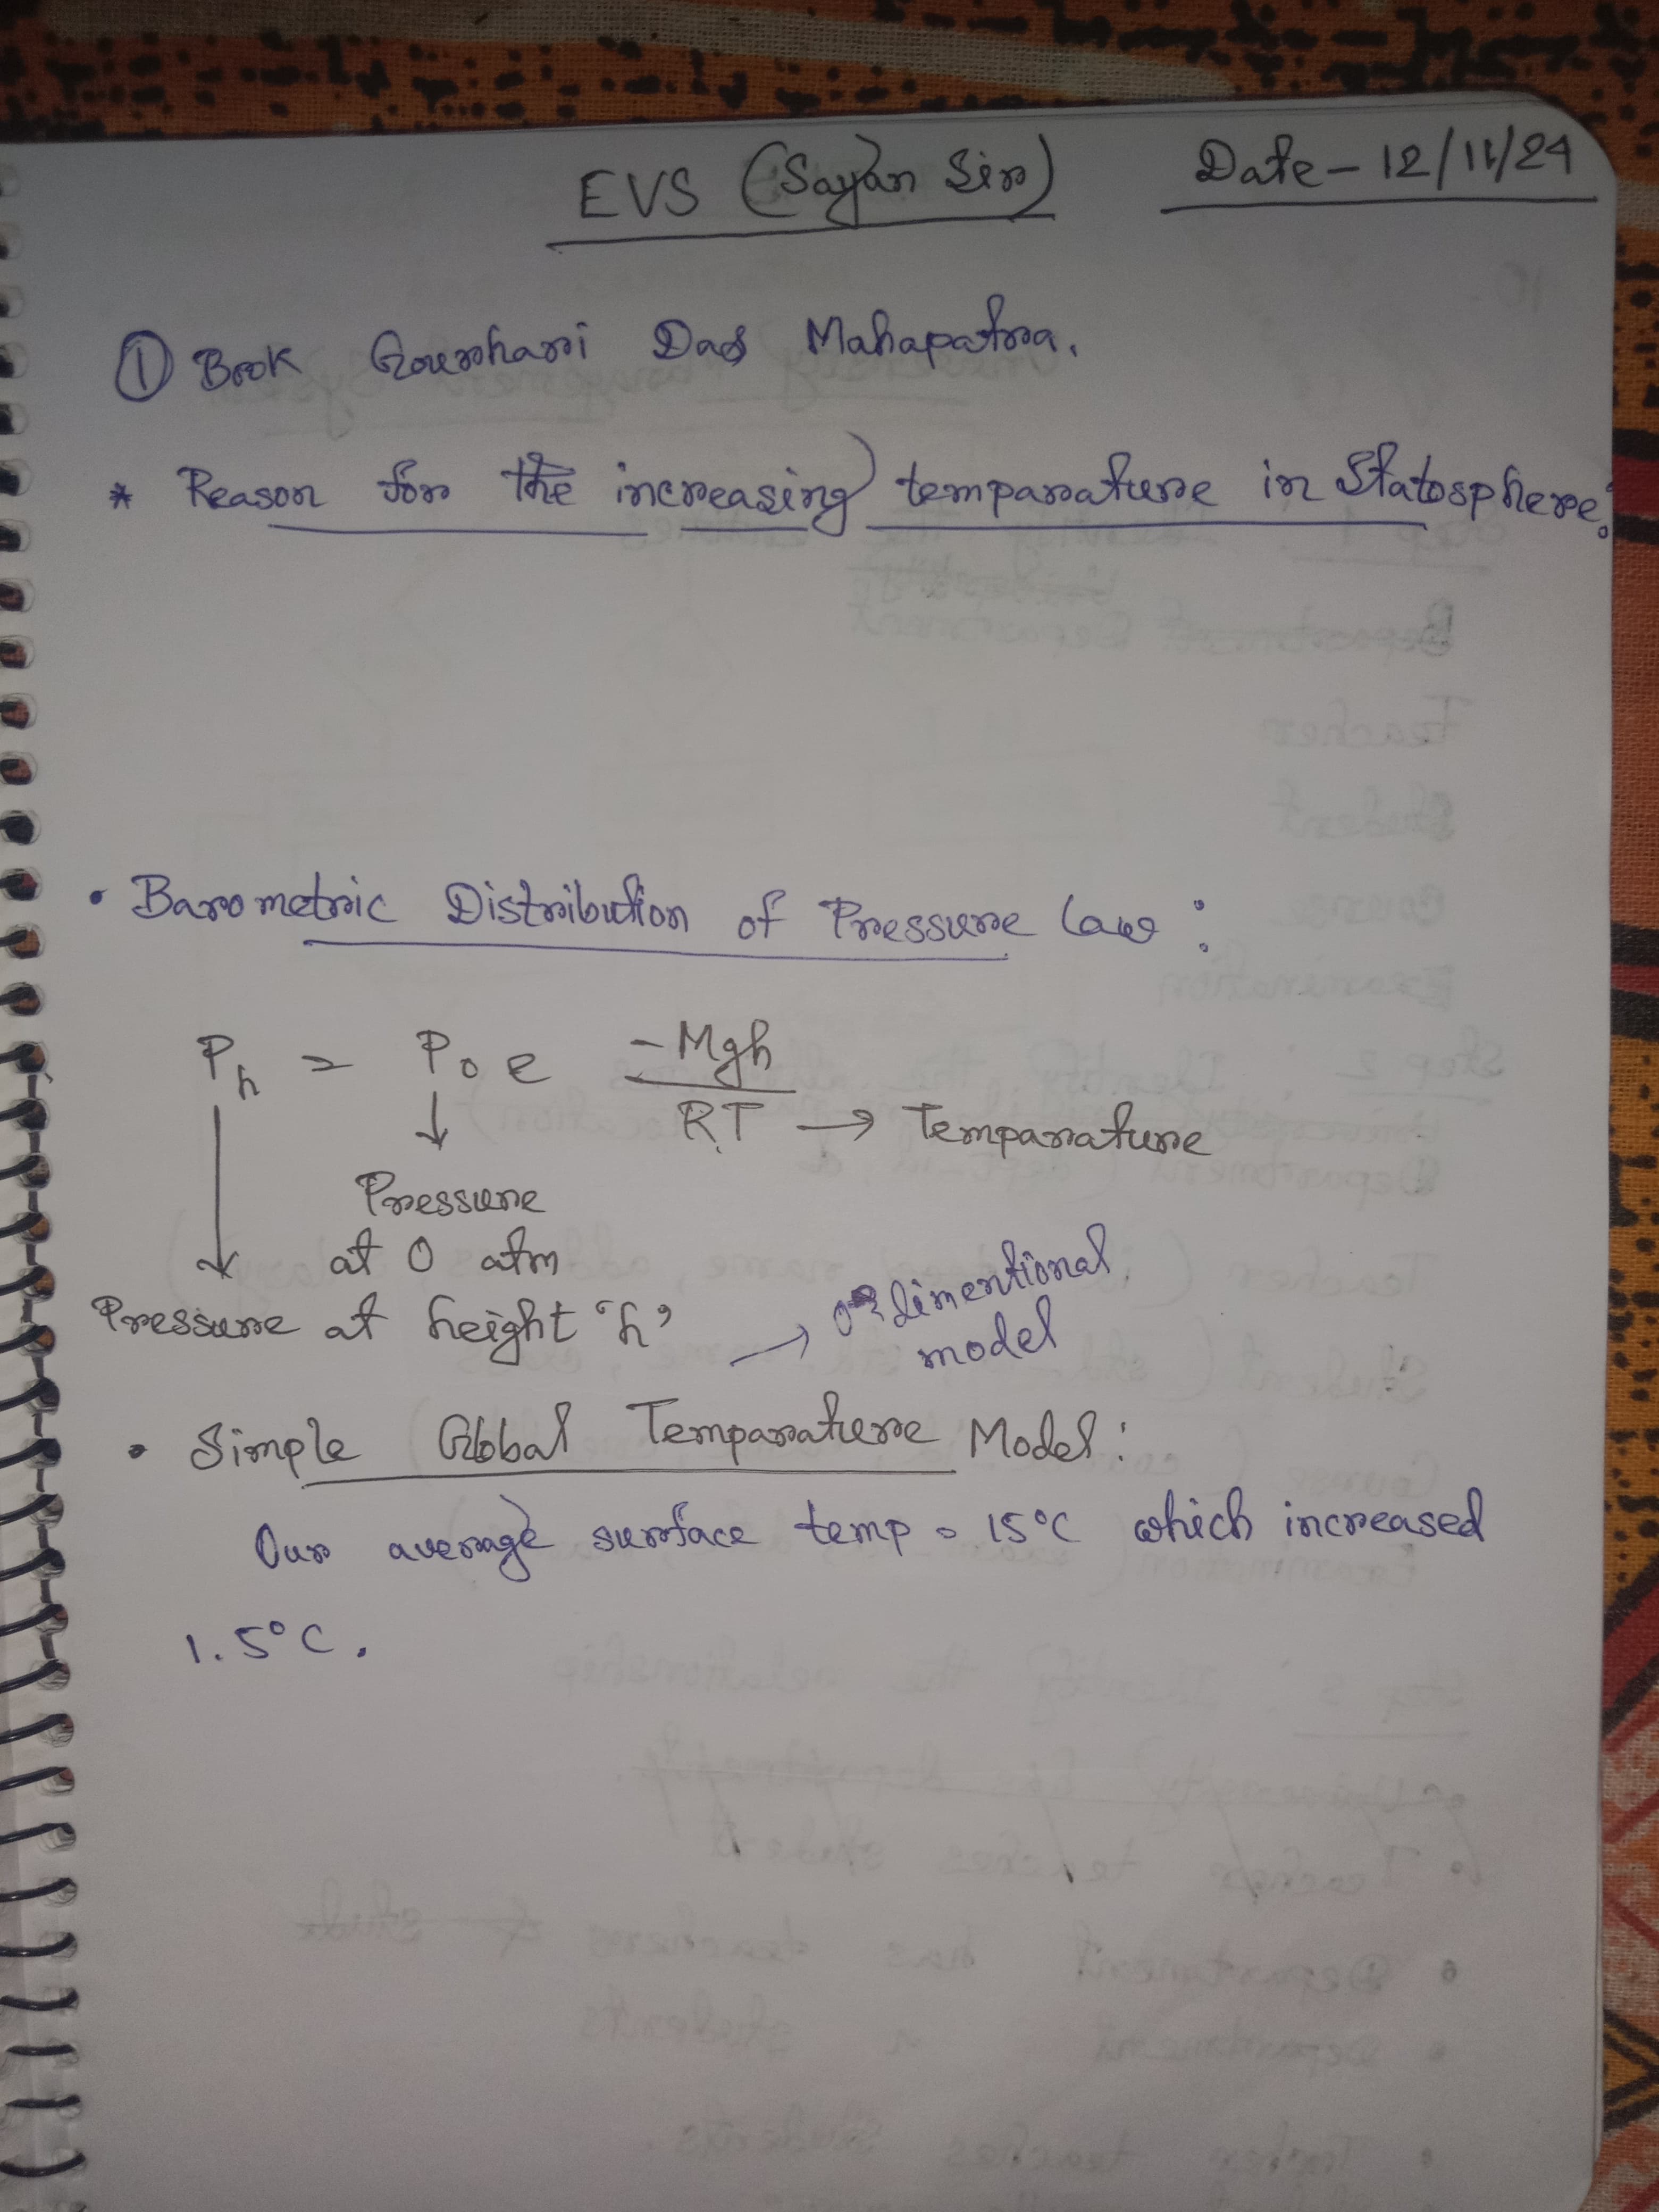 EVS (Sayan Sir) Date - 12/11/24
① Book Gourhari Das Mahapatra.
* Reason for the increasing temparature in Statosphere:
• Barometric Distribution of Pressure law:
Ph = P0 e -Mgh
RT → Temparature
Pressure
at 0 atm
Pressure at height 'h'
→ 0 dimentional
model
• Simple Global Temparature Model:
Our average surface temp = 15°C which increased
1.5°C.